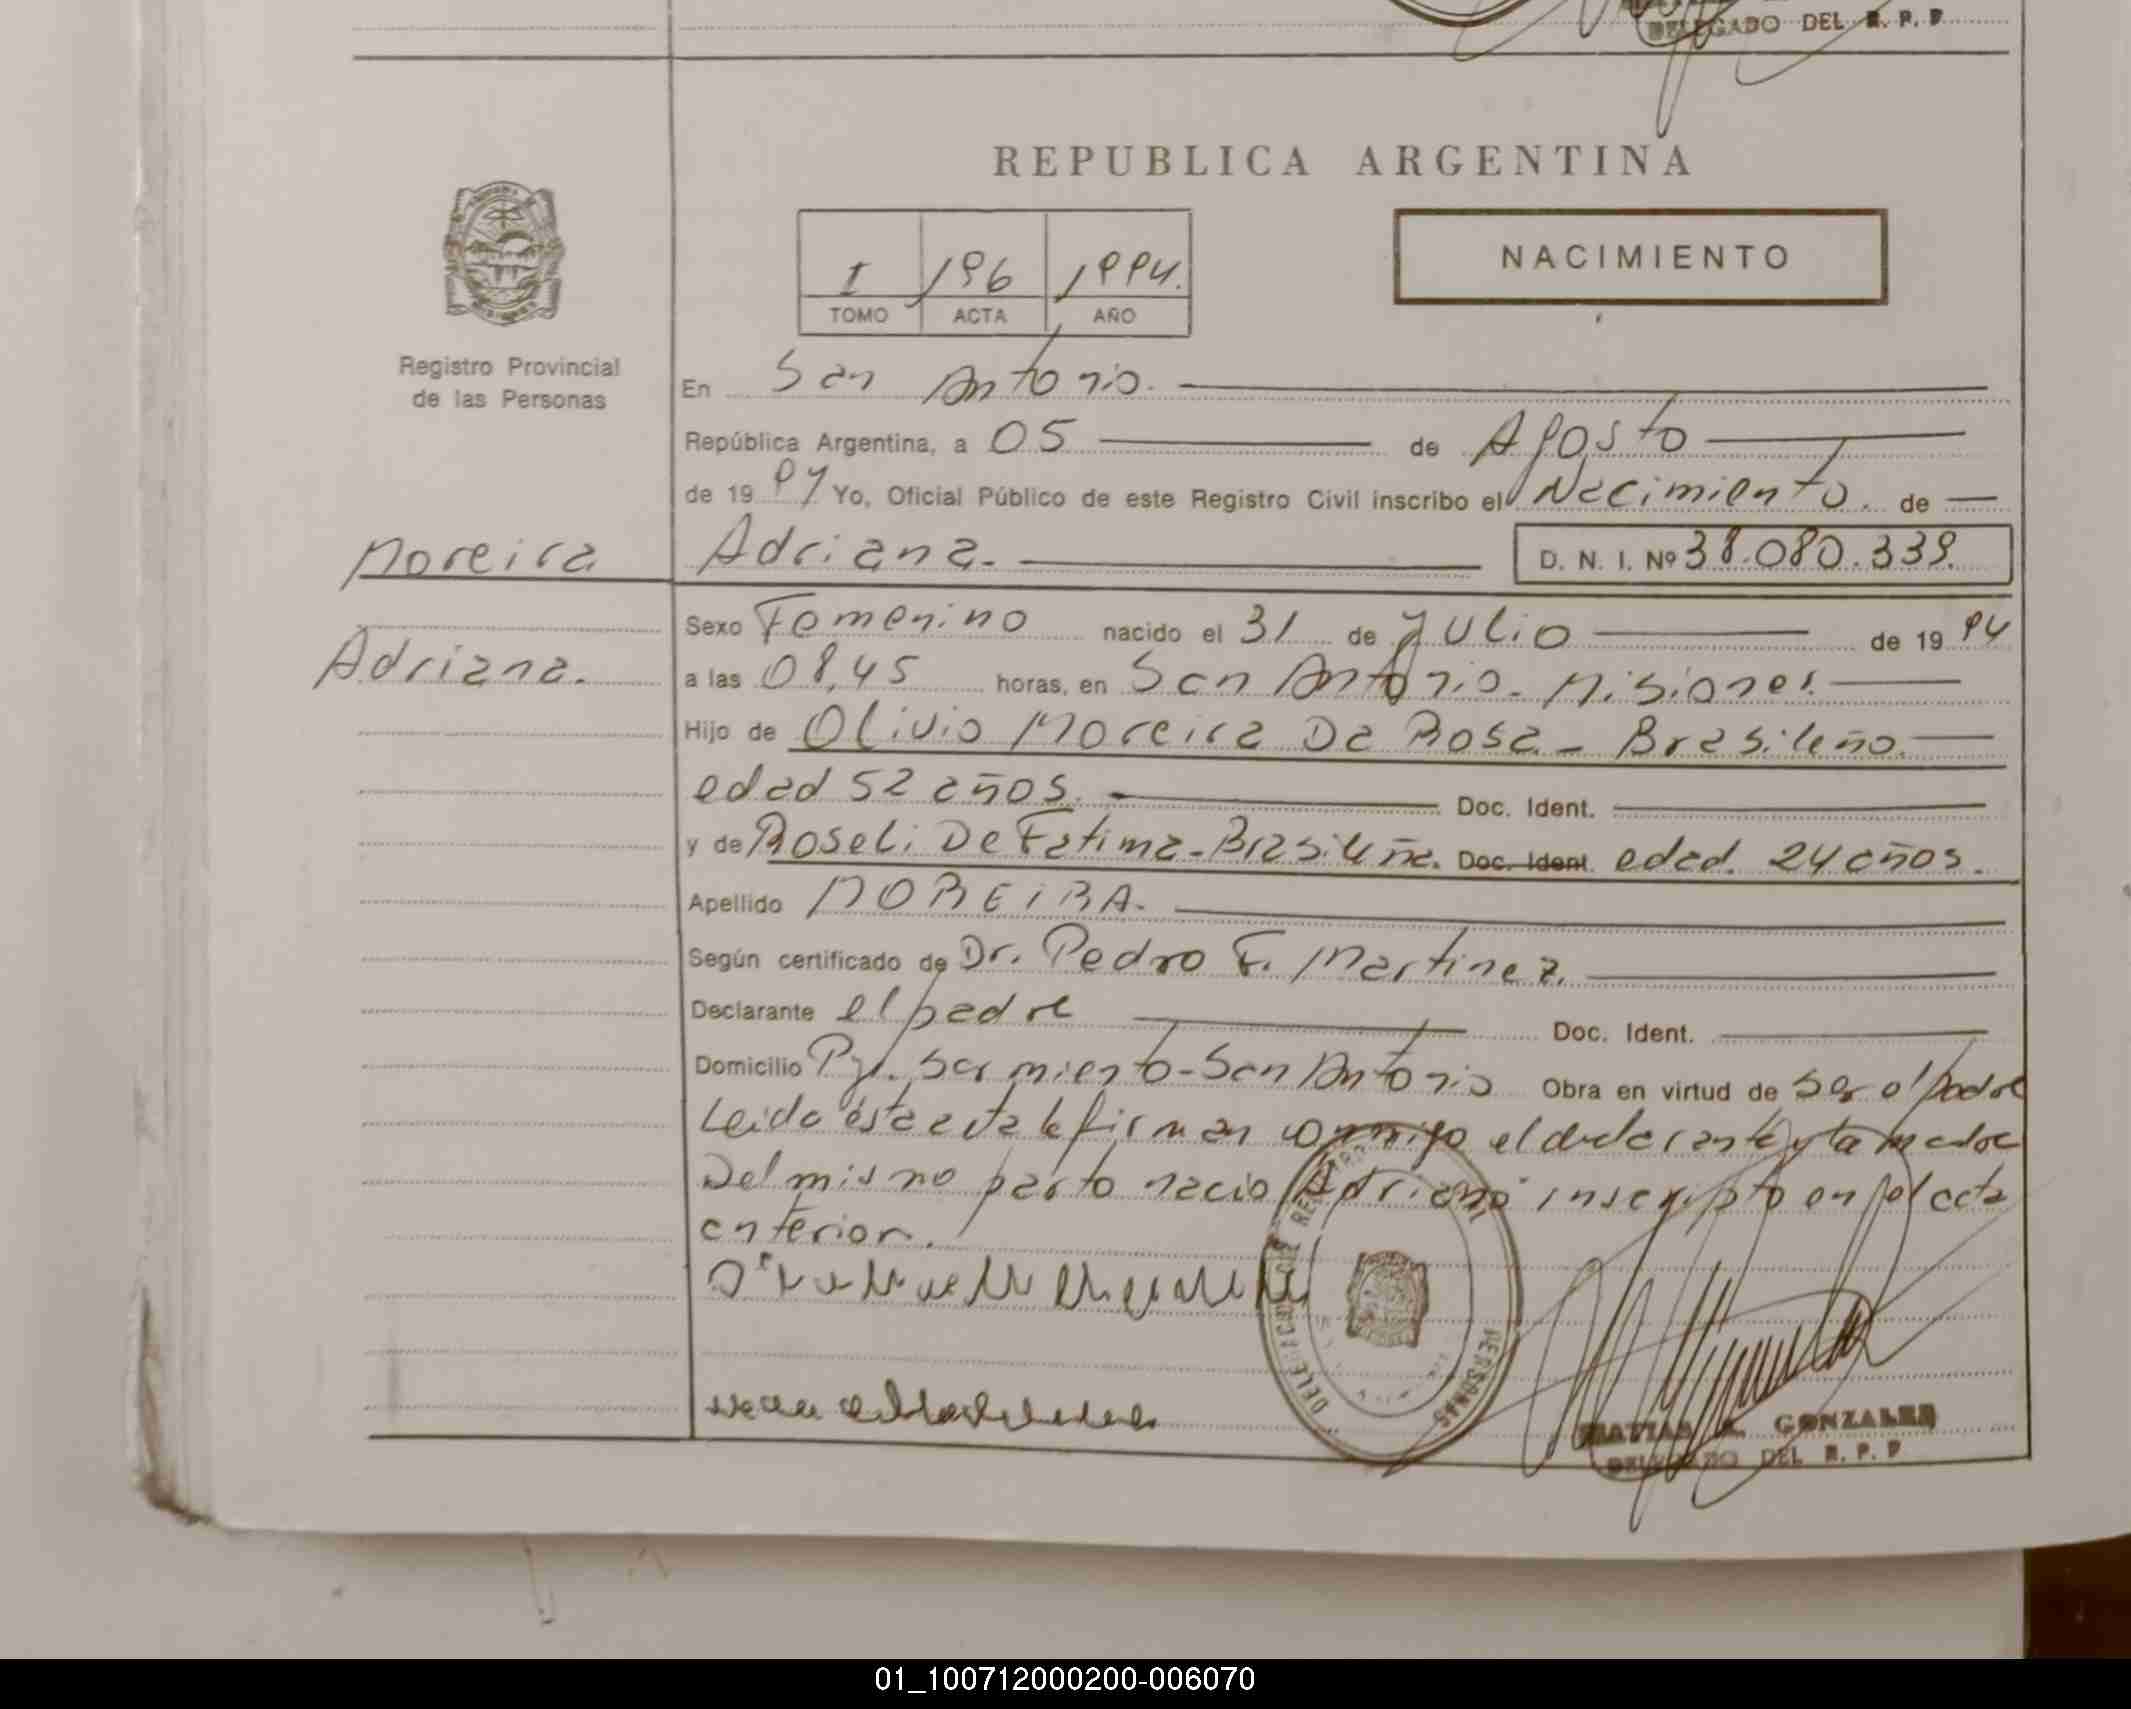 DELEGADO DEL R. P. P
REPUBLICA ARGENTINA
I 196 1994.
TOMO ACTA AÑO
NACIMIENTO
Registro Provincial
de las Personas
En San Antonio.
República Argentina, a 05 de Agosto
de 19 94 Yo, Oficial Público de este Registro Civil inscribo el Nacimiento. de
Moreira Adriana. D. N. I. Nº 38.080.339.
Sexo Femenino nacido el 31 de Julio de 19 94
Adriana. a las 08,45 horas, en San Antonio. Misiones.
Hijo de Olivio Moreira Da Rosa - Brasileño.
edad 52 años. Doc. Ident.
y de Roseli De Fatima - Brasileña. Doc. Ident. edad. 24 años.
Apellido MOREIRA.
Según certificado de Dr. Pedro F. Martinez.
Declarante el padre Doc. Ident.
Domicilio Pje. Sarmiento - San Antonio Obra en virtud de ser el padre
Leida ésta acta la firman conmigo el declarante y la madre
Del mismo parto nacio "Adriano" inscripto en el acta
anterior.
REGISTRO PERSONAS
MATIAS GONZALEZ
DELEGADO DEL R. P. P
01_100712000200-006070